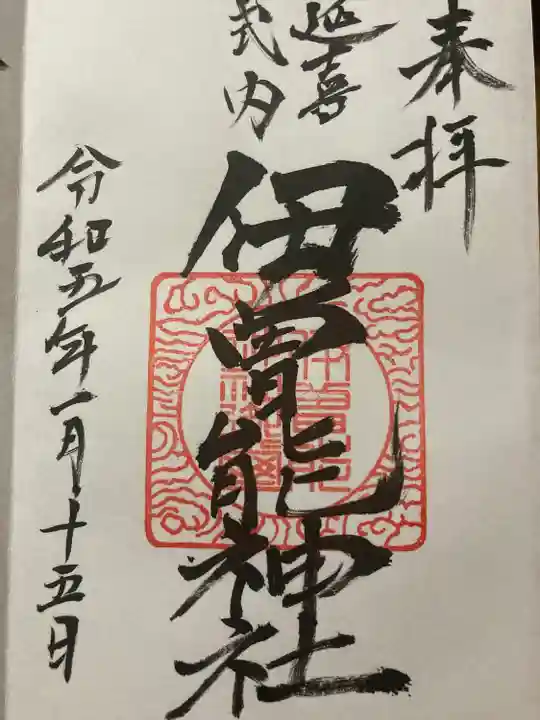 奉拝
延喜
式内
伊能神社
令和五年一月十五日